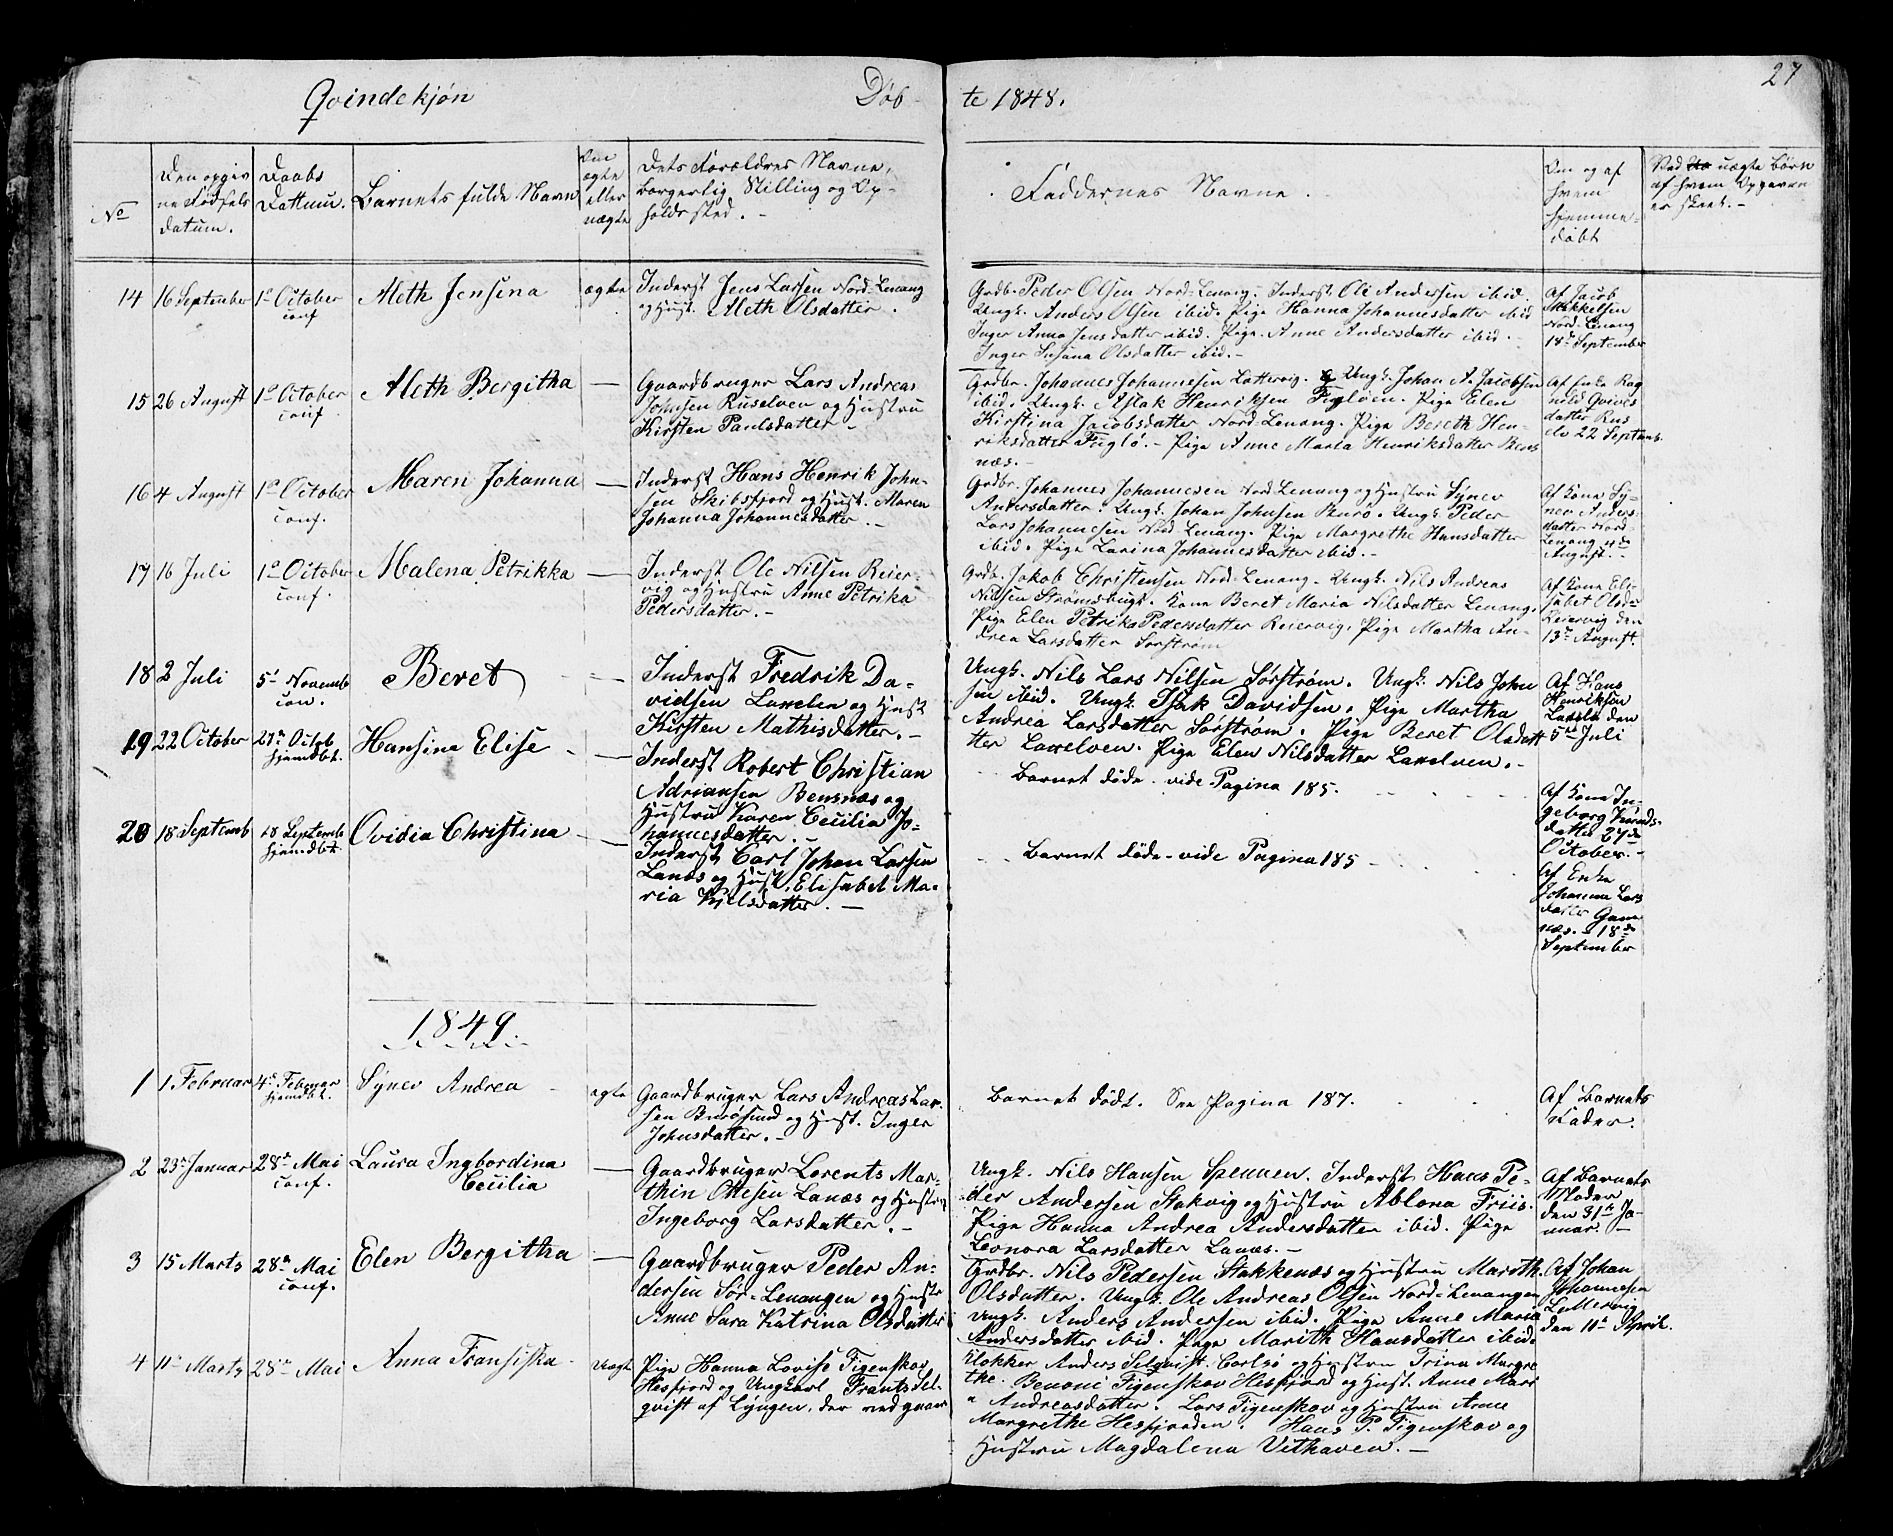 27
Qvindekjøn
Døb-
te 1848.
No
Den opgiv
ne Fødsels
datum.
Daabs
Dattum.
Barnets fulde Navn
Om
ægte
eller
uægte
Dets Forældres Navne,
borgerlig Stilling og Op-
holds sted. -
Faddernes Navne.
Om og af
hvem
hjemme-
døbt
Ved uægte Børn
af hvem Opgaven
er skeet. -
14
16 September
1ste October
conf
Aleth Jensina
ægte
Inderst Jens Larsen Nord-Lenang
og Hust. Aleth Olsdatter.
Grdb. Peder Olsen Nord-Lenang. Inderst Ole Andersen ibid.
Ungk. Anders Olsen ibid. Pige Hanna Johannesdatter ibid
Inger Anna Jensdatter ibid. Pige Anne Andersdatter ibid. -
Inger Susana Olsdatter ibid. -
Af Jacob
Mikkelsen
Nord-Lenang
18de September
15
26 August
1ste October
conf.
Aleth Bergitha
—
Gaardbruger Lars Andreas
Johnsen Ruselven og Hustru
Kirsten Paulsdatter -
Grdbr. Johannes Johannesen Lattervig. Ungk. Johan A. Jacobsen
ibid. Ungk. Aslak Henriksen Fugløen. Pige Elen
Kirstina Jacobsdatter Nord-Lenang. Pige Bereth Hen-
riksdatter Fuglø. - Pige Anne Marta Henriksdatter Bens
næs. -
Af Enke Rag
nild Qvives
datter Rus
elv 22 Septemb.
16
4 August
1ste October
conf.
Maren Johanna
—
Inderst Hans Henrik John-
sen Skibsfjord og Hust. Maren
Johanna Johannesdatter. -
Grdbr. Johannes Johannesen Nord-Lenang og Hustru Synev
Andersdatter. Ungk. Johan Johnsen Burø. Ungk. Peder
Lars Johannesen Nord Lenang. Pige Margrethe Hansdatter
ibid. Pige Larina Johannesdatter ibid. -
Af Kone Sy-
nev Anders-
datter Nord-
Lenang 4de
August. -
17
16 Juli
1ste October
conf.
Malena Petrikka
—
Inderst Ole Nilsen Reier-
vig og Hustru Anne Petrika
Pedersdatter. -
Grdb. Jakob Christensen Nord-Lenang - Ungk. Nils Andreas
Nilsen Strømsbugt. Kone Beret Maria Nilsdatter Lenang.
Pige Elen Petrika Pedersdatter Reiervig, Pige Martha An-
drea Larsdatter Sørstrøm
Af Kone Eli-
sabet Olsd.
Reiervig den
13de August.
18
2 Juli
5te Novemb
con.
Beret
—
Inderst Fredrik Da-
vidsen Laxelven og Hust
Kirsten Mathisdatter. -
Ungk. Nils Lars Nilsen Sørstrøm. Ungk. Nils John
sen ibid. Ungk. Isak Davidsen. Pige Martha
Andrea Larsdatter Sørstrøm. Pige Beret Olsdatt
tter Laxelven. Pige Elen Nilsdatter Laxelven. -
Af Hans
Henriksen
Laxelv den
5te Juli
19
22 October
27de Octob
hjemdbt.
Hansina Elise
—
Inderst Robert Christian
Adriansen Bensnæs og
Hustru Karen Cecilia Jo-
hannesdatter. -
Barnet døde. vide Pagina 185.
Af Kone In-
geborg Knuds-
datter 27de
October. -
20
18 Septemb
18 Septemb
hjemdbt
Ovidia Christina
—
Inderst Carl Johan Larsen
Lanæs og Hust. Elisabet Ma-
ria Nielsdatter. -
Barnet døde - vide Pagina 185
Af Enke
Johanna Lars
datter Gam
næs. - 18de
September
1849.
1
1 Februar
4de Februar
hjemdbt.
Synev Andrea
ægte
Gaardbruger Lars Andreas Lar-
sen Burøsund og Hust. Inger
Johnsdatter. -
Barnet dødt. See Pagina 187.
Af Barnets
Fader.
2
23de Januar
28de Mai
conf.
Laura Ingbordina
Cecilia
—
Gaardbruger Lorents Mar-
thin Ottesen Lanæs og Hustru
Ingeborg Larsdatter. -
Ungk. Nils Hansen Spennen. Inderst Hans Pe-
der Andersen Stakvig og Hustru Ablona Friis.
Pige Hanna Andrea Andersdatter ibid. Pige
Leonora Larsdatter Lanæs. -
Af Barnets
Moder
den 31te Ja-
nuar. -
3
15 Marts
28de Mai
conf.
Elen Bergitha
—
Gaardbruger Peder An-
dersen Sør-Lenangen og Hustr
Anne Sara Katrina Olsdatter
Grdbr. Nils Pedersen Stakkenæs og Hustru Mareth
Olsdatter. Ungk. Ole Andreas Olsen Nord-Lenangen
Ungk. Anders Andersen ibid. Pige Anne Maria
Andersdatter ibid. Pige Marith Hansdatter ibid.
Af Johan
Johannesen
Lattervig
den 11te April.
4
11te Marts
28de Mai
Anna Fransiska
Uægt
Pige Hanna Lovise Figenskov
Hesfjord og Ungkarl Frants Sel-
qvist af Lyngen, der vedgaar
Klokker Anders Selqvist Carlsø og Hustru Trina Margre
the. Benoni Figenskov Hesfjord og Hust. Anne Mari
a Andreasdatter. Lars Figenskov og Hustru Anne
Margrethe Hesfjorden. Hans P. Figenskov og
Hustru Magdalena Vethaven. -